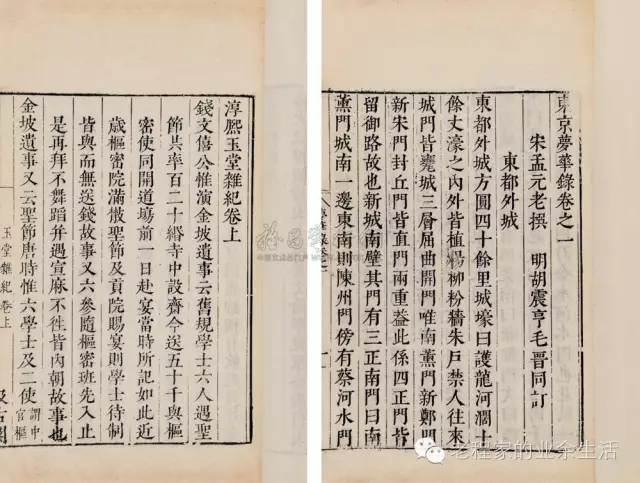 東京夢華錄卷之一
宋孟元老撰　明胡震亨毛晉同訂
東都外城
東都外城方圓四十餘里城壕曰護龍河濶十
餘丈濠之內外皆植楊柳粉牆朱戶禁人往來
城門皆甕城三層屈曲開門唯南薰門新鄭門
新宋門封丘門皆直門兩重葢此係四正門皆
留御路故也新城南壁其門有三正南門曰南
薰門城南一邊東南則陳州門傍有蔡河水門
淳熈玉堂雜紀卷上
錢文僖公惟演金坡遺事云舊規學士六人遇聖
節共率百二十緡寺中設齋今送五十千與樞
密使同開道場前一日赴宴當時所記如此近
歲樞密院滿散聖節及貢院賜宴則學士待制
皆與而無送錢故事又六參隨樞密班先入止
是再拜不舞蹈并遇宣麻不徃皆內朝故事也
金坡遺事又云聖節唐時惟六學士及二使謂中官樞
玉堂雜紀卷上
汲古閣
老程家的业余生活